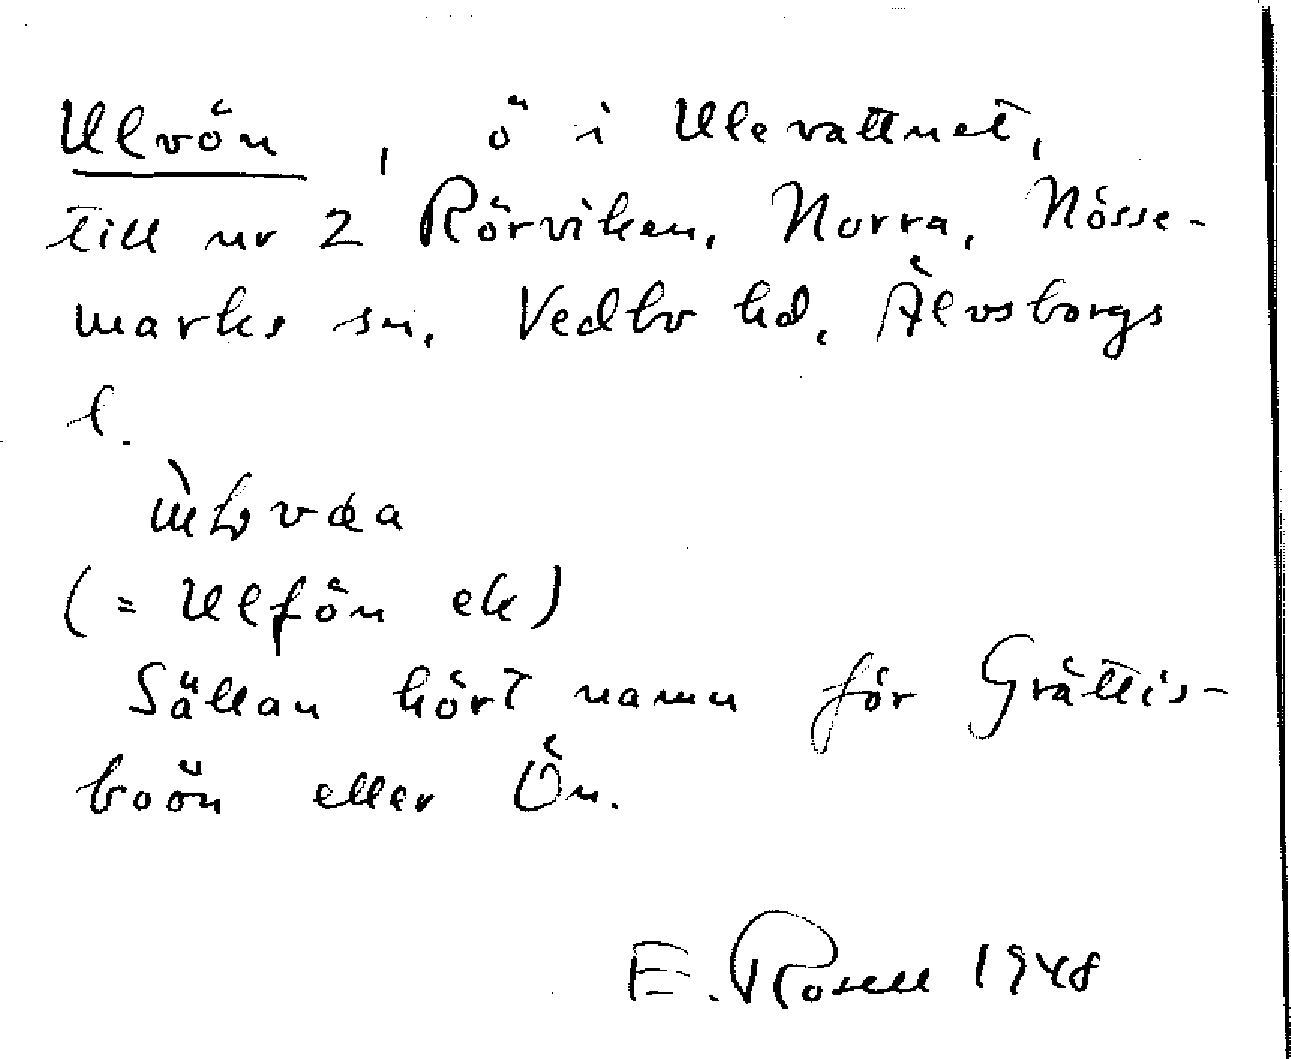 Ulvön, ö i Ulevattnet,
till nr 2 Rörviken, Norra, Nösse-
marks sn, Vedbo hd, Älvsborgs
l.
(= Ulfön ek)
Sällan hört namn för Grättis-
boön eller Ön.
E. Rosell 1948